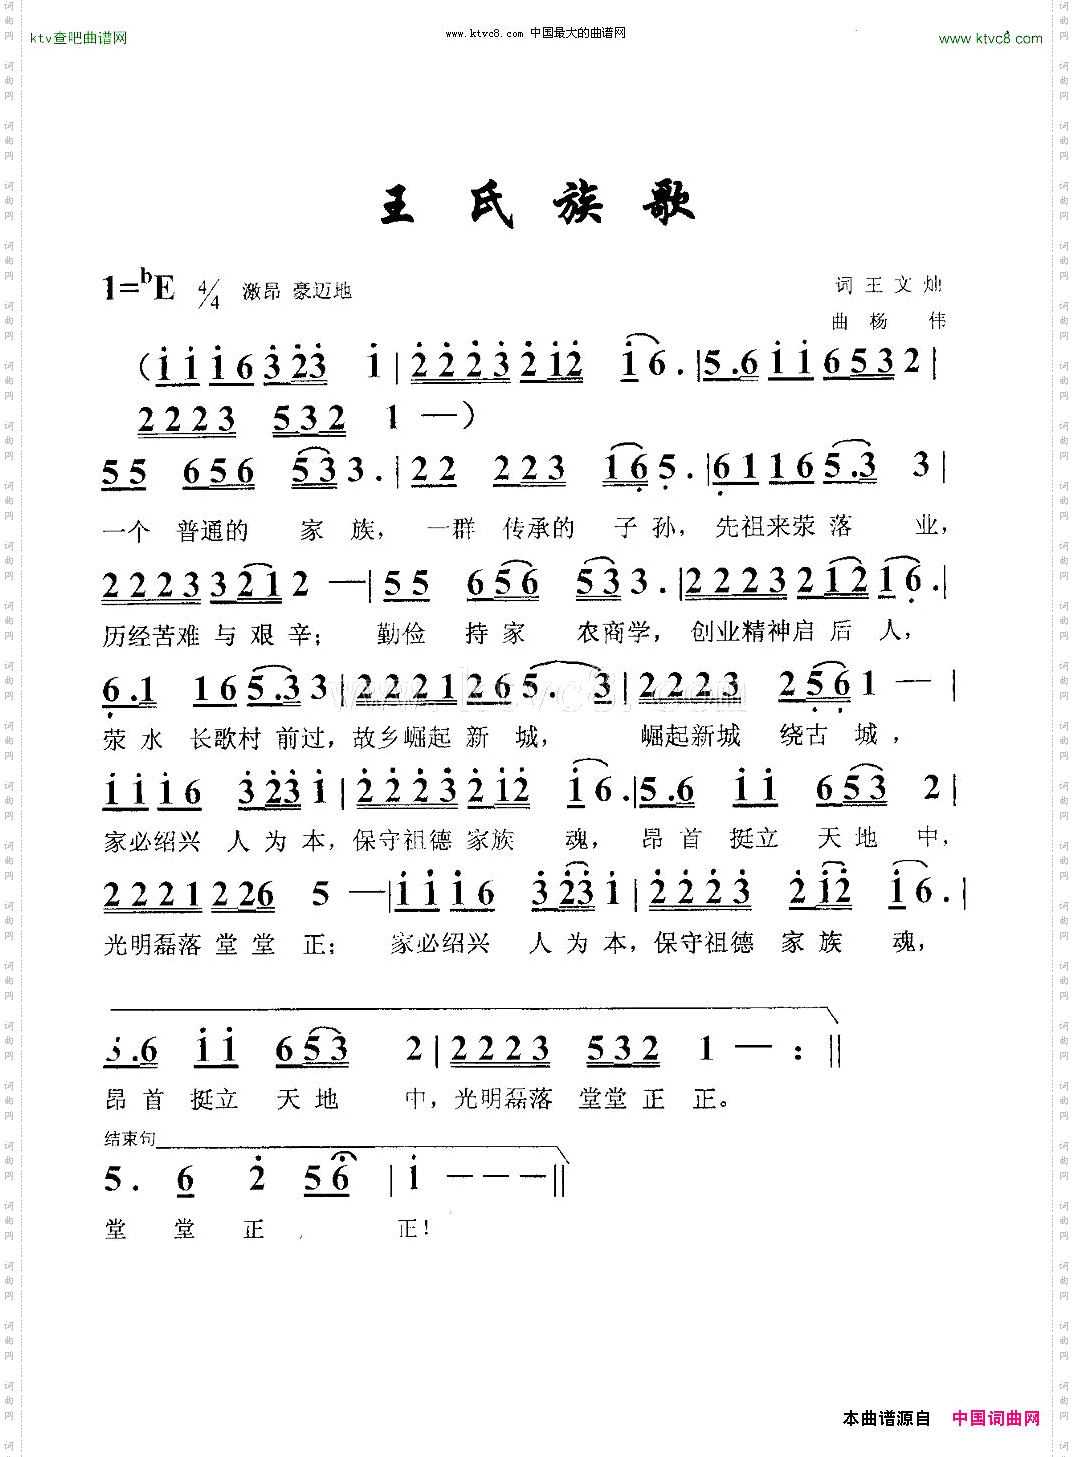 ktv查吧曲谱网
www.ktvc8.com 中国最大的曲谱网
www ktvc8 com
王氏族歌
1=bE 4/4 激昂 豪迈地
词 王文灿
曲 杨伟
(i i i 6 3 2 3 i | 2 2 2 3 2 i 2 i 6 . | 5 . 6 i i 6 5 3 2 |
2 2 2 3 5 3 2 1 — )
5 5 6 5 6 5 3 3 . | 2 2 2 2 3 1 6 5 . | 6 1 1 6 5 . 3 3 |
一个 普通的 家 族, 一群 传承的 子 孙, 先祖来荥 落 业,
2 2 2 2 3 3 2 1 2 — | 5 5 6 5 6 5 3 3 . | 2 2 2 3 2 1 2 1 6 . |
历经苦难 与 艰 辛; 勤俭 持 家 农商学, 创业精神启 后 人,
6 . 1 1 6 5 . 3 3 | 2 2 2 1 2 6 5 . 3 | 2 2 2 3 2 5 6 1 — — |
荥 水 长歌村 前过, 故乡崛起 新 城, 崛起新城 绕古 城,
i i i 6 3 2 3 i | 2 2 2 3 2 i 2 i 6 . | 5 . 6 i i 6 5 3 2 |
家必绍兴 人 为 本, 保守祖德 家族 魂, 昂 首 挺立 天 地 中,
2 2 2 1 2 2 6 5 — | i i i 6 3 2 3 i | 2 2 2 3 2 i 2 i 6 . |
光明磊落 堂 堂 正; 家必绍兴 人 为 本, 保守祖德 家 族 魂,
5 . 6 i i 6 5 3 2 | 2 2 2 3 5 3 2 1 — : ||
昂 首 挺立 天 地 中, 光明磊落 堂堂 正 正。
结束句
5 . 6 2 5 6 | i — — — ||
堂 堂 正 , 正!
www.ktvc8.com
本曲谱源自 中国词曲网
词曲网